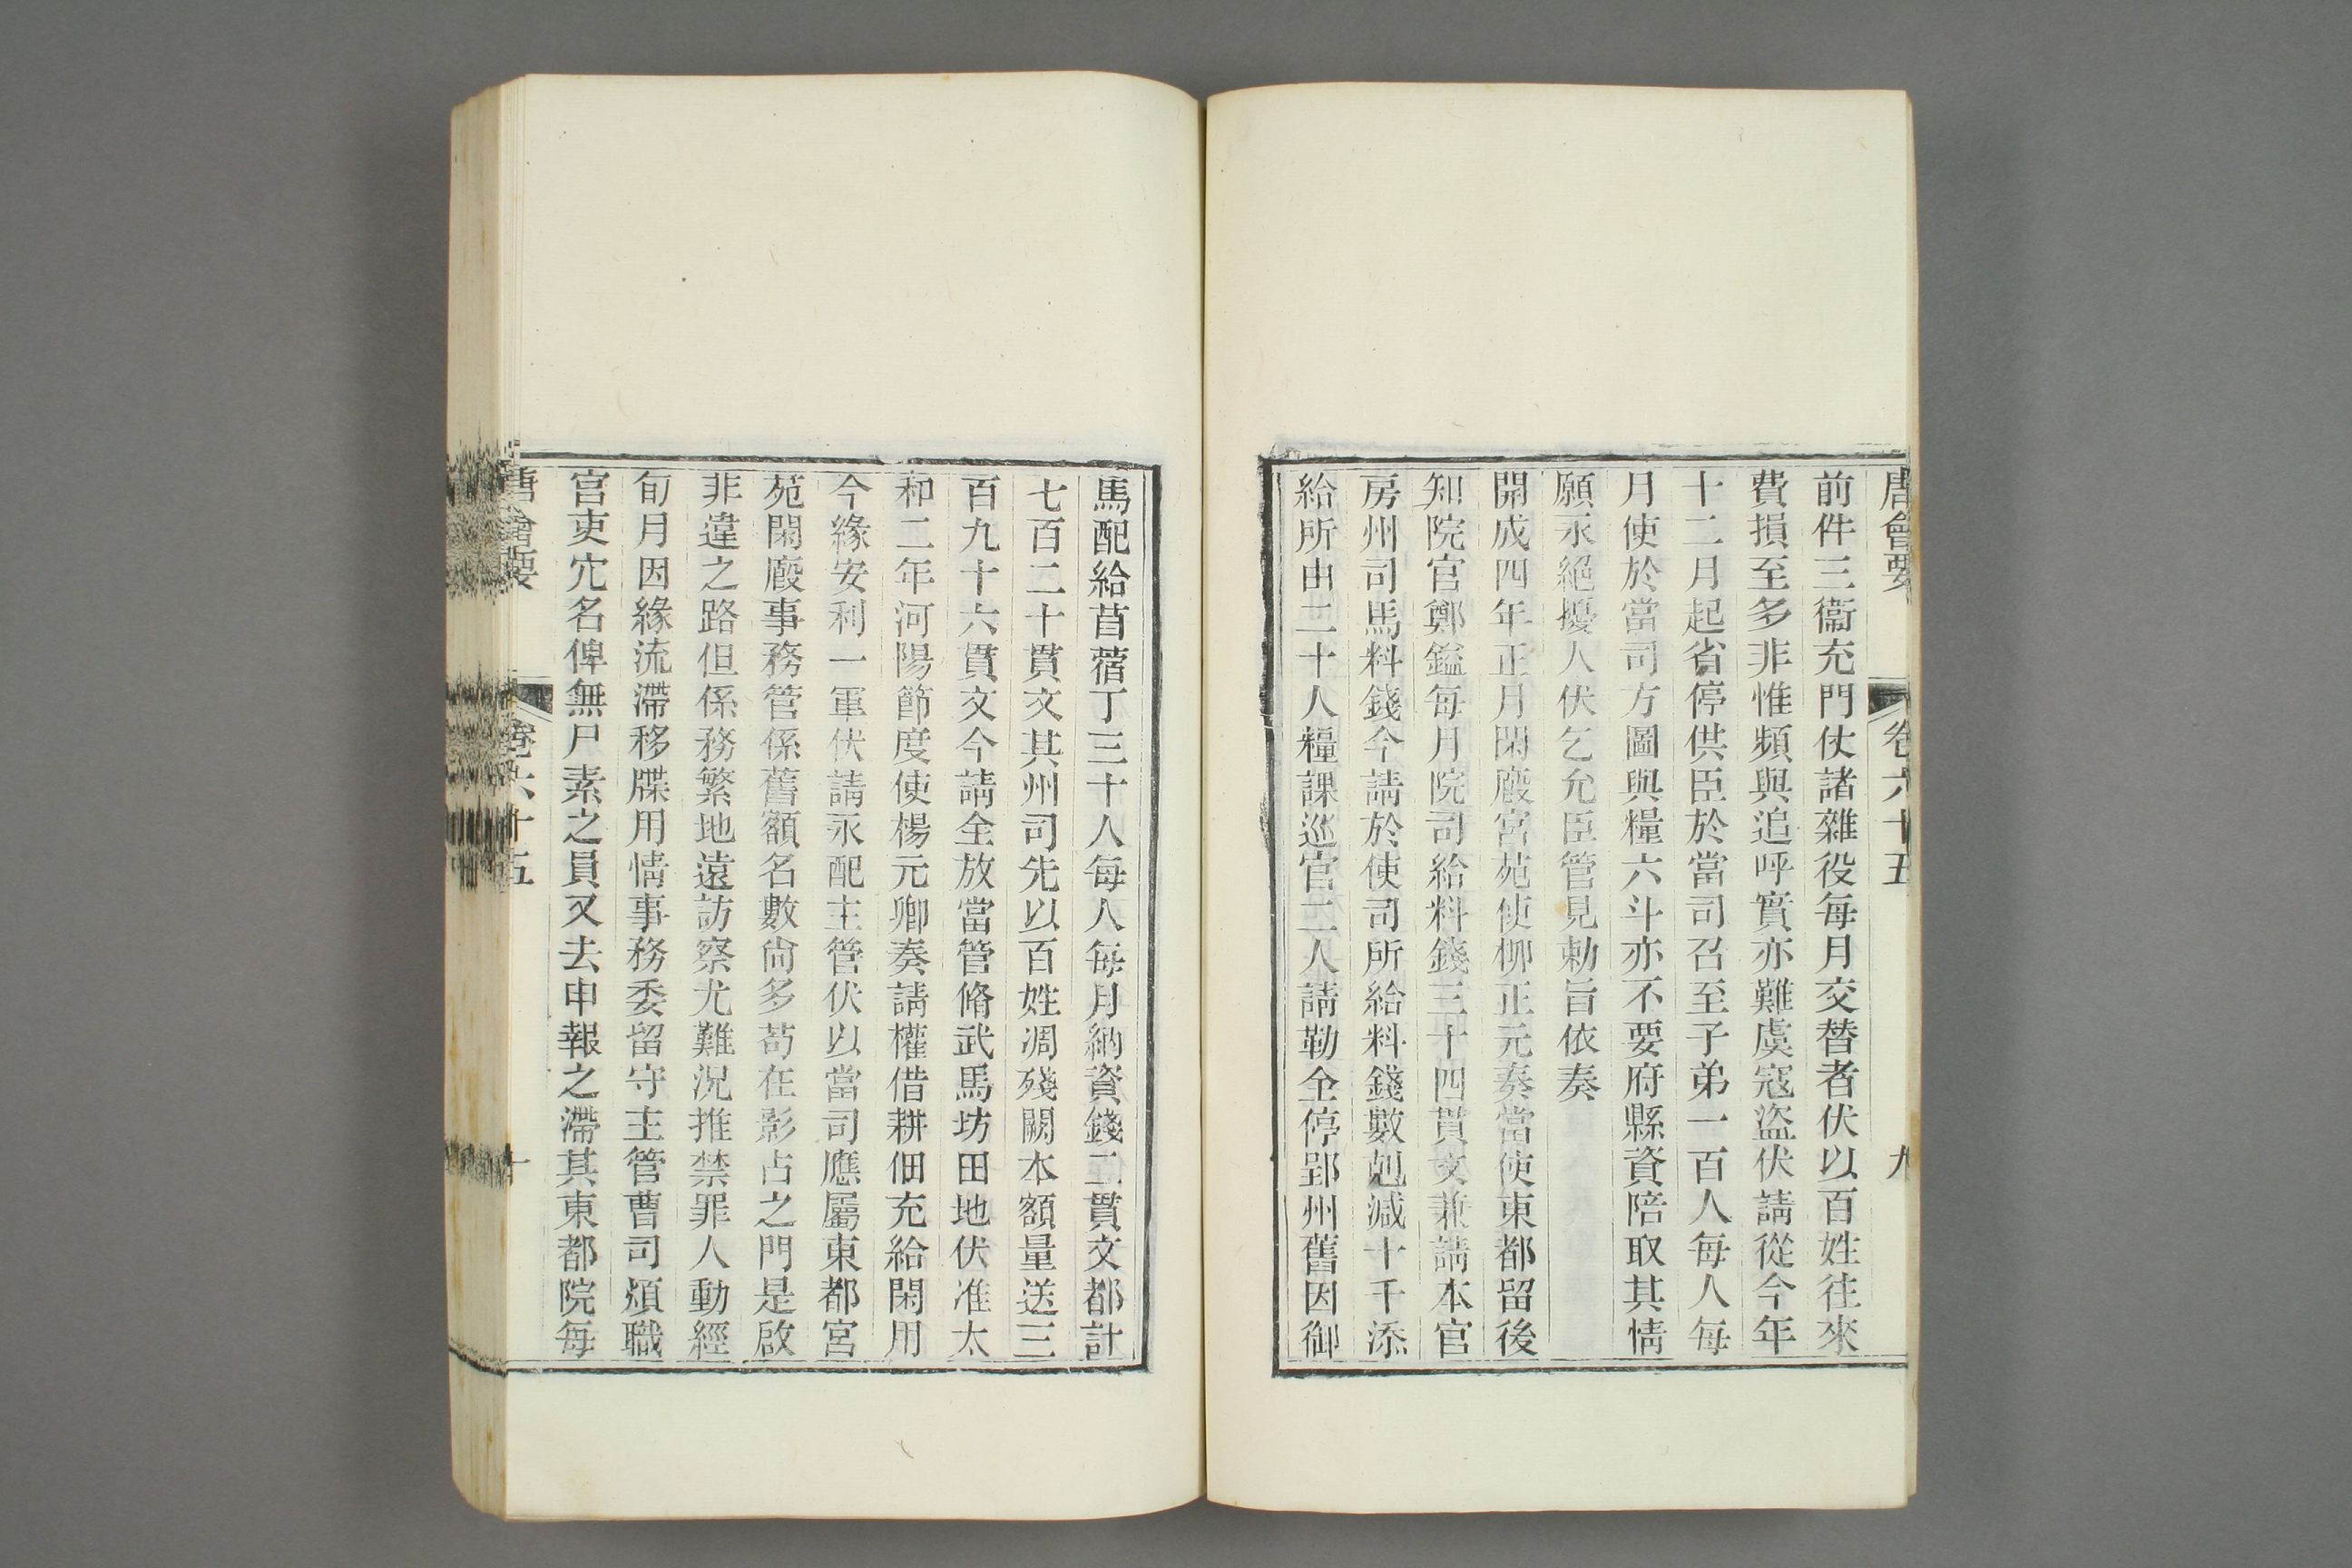 唐會要 卷六十五 九
前件三衞充門仗諸雜役每月交替者伏以百姓往來
費損至多非惟頻與追呼實亦難虞寇盜伏請從今年
十二月起省停供臣於當司召至子弟一百人每人每
月使於當司方圖與糧六斗亦不要府縣資陪取其情
願永絕擾人伏乞允臣管見勅旨依奏
開成四年正月閑廄宮苑使柳正元奏當使東都留後
知院官鄭鎰每月院司給料錢三十四貫文兼請本官
房州司馬料錢今請於使司所給料錢數剋減十千添
給所由二十人糧課巡官二人請勒全停郢州舊因御
馬配給苜蓿丁三十人每人每月納資錢二貫文都計
七百二十貫文其州司先以百姓凋殘闕本額量送三
百九十六貫文今請全放當管脩武馬坊田地伏准太
和二年河陽節度使楊元卿奏請權借耕佃充給閑用
今緣安利一軍伏請永配主管伏以當司應屬東都宮
苑閑廄事務管係舊額名數尙多苟在影占之門是啟
非違之路但係務繁地遠訪察尤難況推禁罪人動經
旬月因緣流滯移牒用情事務委留守主管曹司煩職
宮吏宂名俾無尸素之員又去申報之滯其東都院每
唐會要 卷六十五 十